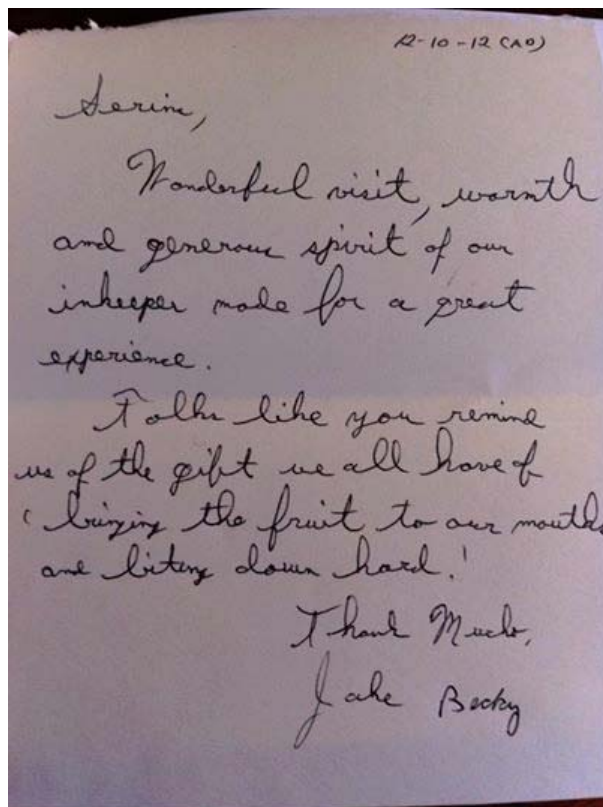 12-10-12 (AD)
Serine,
Wonderful visit, warmth
and generous spirit of our
inkeeper made for a great
experience.
Folks like you remind
us of the gift we all have of
'bringing the fruit to our mouths
and biting down hard.'
Thank Much,
Jake Becky